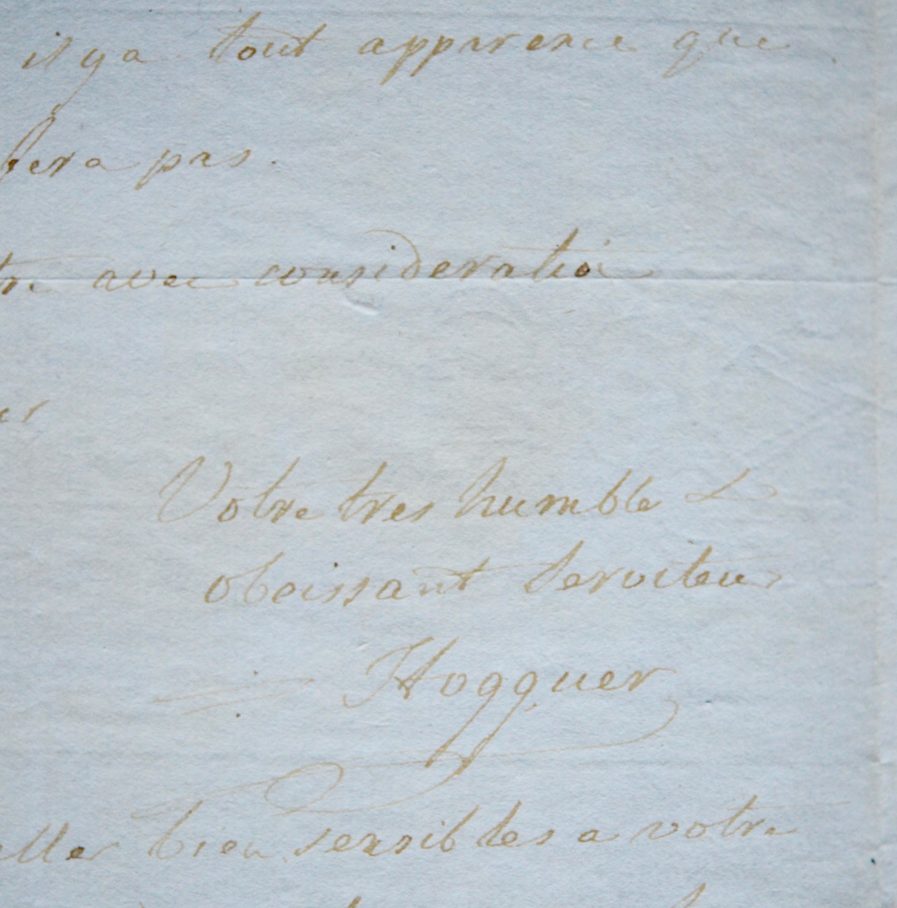 il y a tout apparence que
fera pas.
avec consideratiõ
Votre tres humble &
obeissant Serviteur
Hogguer
elles bien sensibles a votre